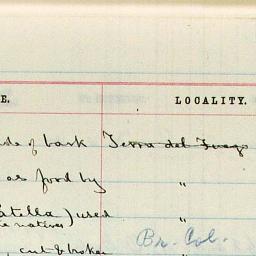 E. LOCALITY.
de of bark Terra del Fuego
as food by "
atella) used "
e natives
Br. Col.
, cut & broken "